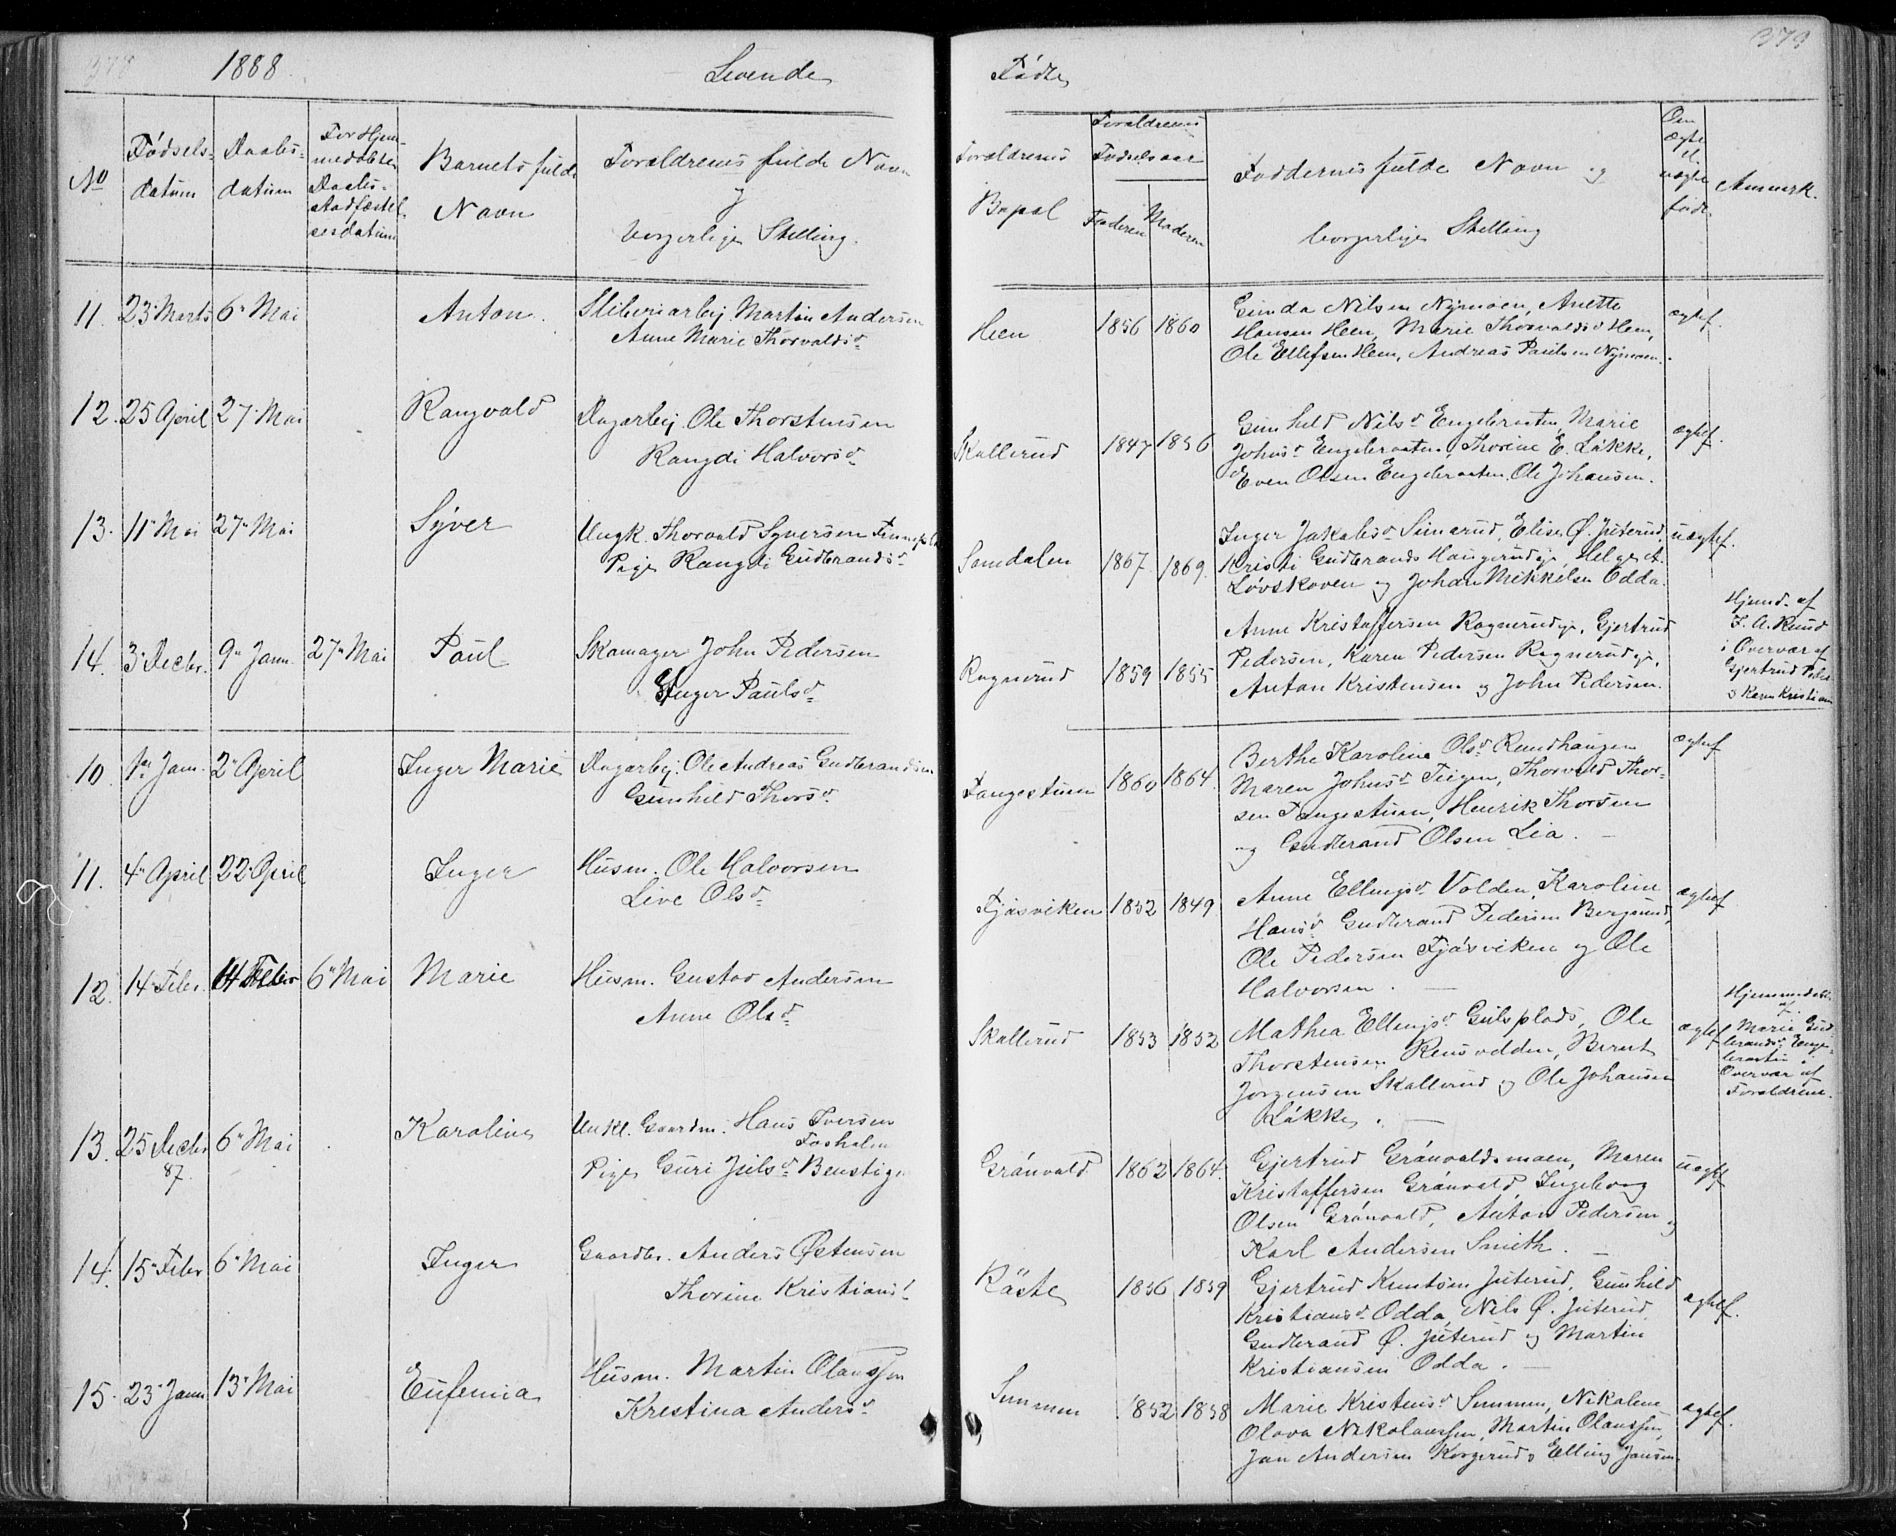 378
1888.
Levende
Fødte
379
No
Fødsels-
datum
Daabs-
datum
For Hjem-
medøbte
Daabs-
stadfæstel-
sesdatum
Barnets fulde
Navn
Forældrenes fulde Navn
og
borgerlige Stilling.
Forældrenes
Bopæl
Forældrenes
Fødselsaar
Faderen
Moderen
Faddernes fulde Navn og
borgerlige Stilling
Om
ægte
el.
uægte
født.
Anmerk.
11. 23 Marts 6 Mai Anton. Sliberiarbej Martin Andersen
Anne Marie Thorvaldsd.
Heen 1856 1860 Gunda Nilsen Nymoen, Anette
Hansen Heen, Marie Thorvaldsd Heen,
Ole Ellefsen Heen, Andreas Paulsen Nymoen.
ægtef.
12. 25 April 27 Mai Rangvald Dagarbej. Ole Thorstensen
Rangdi Halvorsd.
Skallerud 1847 1856 Gunhild Nilsd Engebraaten, Marie
Johnsd Engebraaten, Thorine E. Løkke,
Even Olsen Engebraaten, Ole Johansen.
ægtef.
13. 11 Mai 27 Mai Syver Ungk. Thorvald Syversen
Pige Rangdi Gudbrandsd.
Somdalen 1867. 1869. Inger Jakobsd Simarud, Elise Ø. Juterud,
Kristi Gudbrands Haugerudeje, Helge A.
Løvskoven og Johan Mikkelsen Odda.
uægtef.
14. 3 Decbr. 9 Jann. 27 Mai Paul Skomager John Pedersen
Inger Paulsd.
Rognerud 1859 1855 Anne Kristoffersen Rognerudeje, Gjertrud
Pedersen, Karen Pedersen Rognerudeje,
Anton Kristensen og John Pedersen.
Hjemd. af
T. A. Ruud
i Overvær af
Gjertrud Peders
& Karen Kristian
10. 1 Jan. 2 April Inger Marie Dagarbej. Ole Andreas Gudbrandsen
Gunhild Thorsd.
Tangestuen 1860 1864. Berthe Karoline Olsd Rundhaugen
Maren Johnsd Teigen, Thorvald Thor-
sen Tangestuen, Henrik Thorsen
og Gudbrand Olsen Lia.
ægtef
11. 4 April 22 April Inger Husm. Ole Halvorsen
Live Olsd.
Fjøsviken 1852 1849 Anne Ellingsd Volden, Karoline
Hansd Gudbrand Pedersen Bergsund,
Ole Pedersen Fjøsviken og Ole
Halvorsen.
ægtef
12. 14 Febr. 14 Febr 6 Mai Marie Husm. Gustav Andersen
Anne Olsd.
Skallerud 1853 1852 Mathea Ellingsd Gulsplads, Ole
Thorstensen Rensvolden, Bernt
Jørgensen Skallerud og Ole Johansen
Løkke.
ægtef
Hjemmedøbt
af
Marie Gud
brandsd Enge-
braaten i
Overvær af
Forældrene.
13. 25 Decbr
87. 6 Mai Karoline Unkl. Gaardm. Hans Iversen
Foshalen
Pige Guri Julsd. Benstig
Grønvold 1862 1864. Gjertrud Grønvoldsmoen, Maren
Kristoffersen Grønvold, Ingeborg
Olsen Grønvold, Anton Pedersen og
Karl Andersen Smith.
uægtef
14. 15 Febr 6 Mai Inger Gaardbr. Anders Østensen
Thorine Kristiansd.
Røste 1856 1859 Gjertrud Knutsen Juterud, Gunhild
Kristiansd. Odda, Nils Ø. Juterud
Gudbrand Ø. Juterud og Martin
Kristiansen Odda.
ægtef.
15. 23 Jann 13 Mai Eufemia Husm. Martin Olaussen
Krestina Andersd
Semmen 1852 1858 Marie Kristensd Semmen, Nikoline
Olava Nikolaussen, Martin Olaussen,
Jan Andersen Korgerud & Elling Jansen
ægtef.